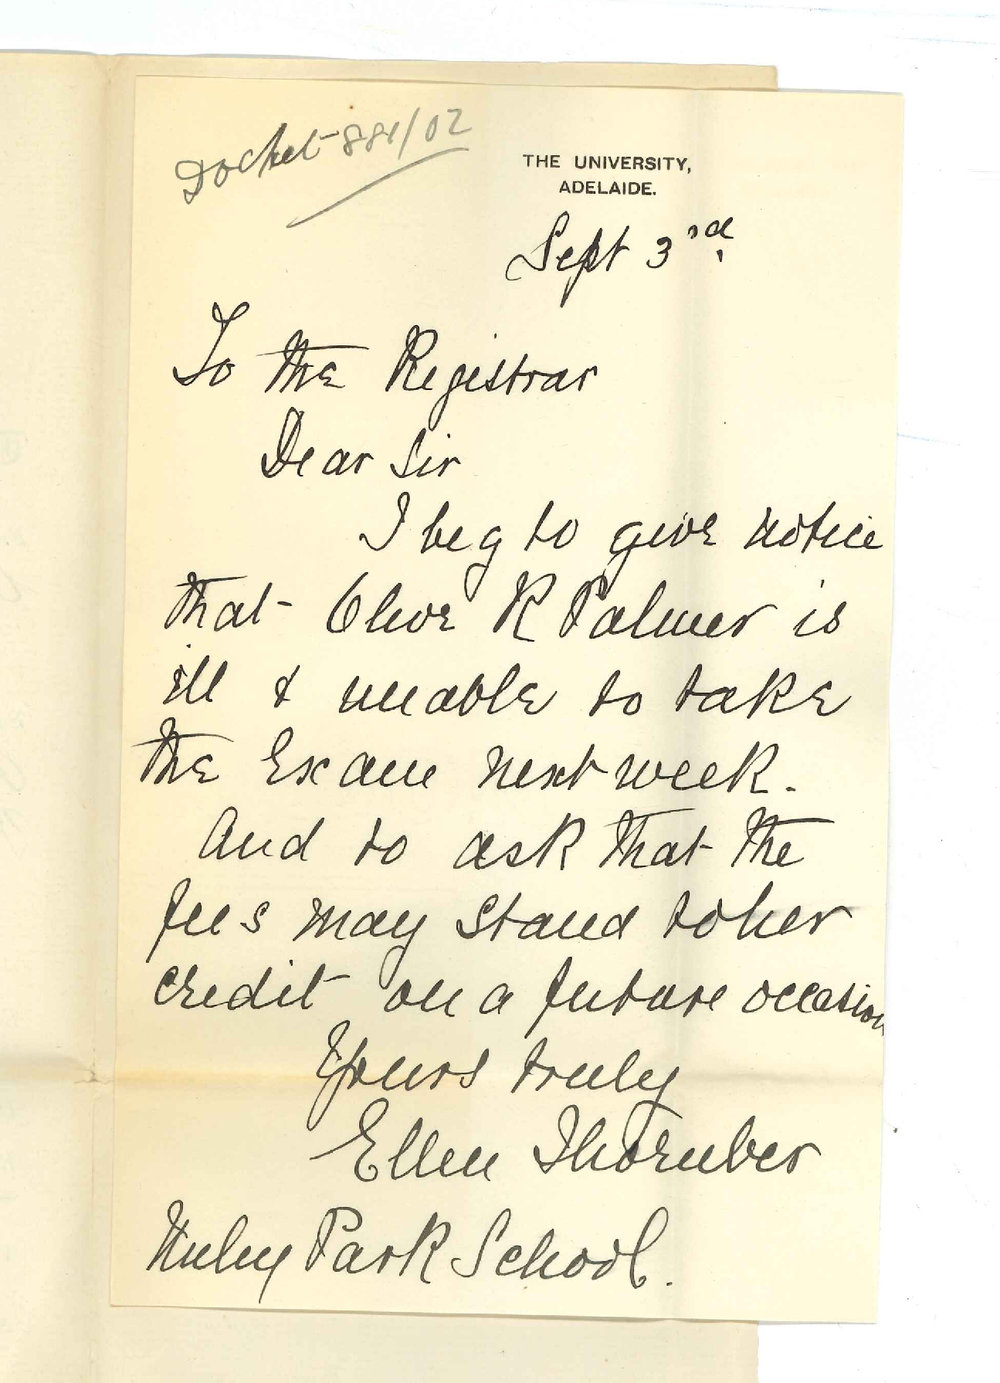 Docket 881/02
THE UNIVERSITY,
ADELAIDE.
Sept 3rd
To the Registrar
Dear Sir
I beg to give notice
that Olive R Palmer is
ill & unable to take
the Exam next week.
And to ask that the
fees may stand to her
credit on a future occasion
Yours truly
Ellen Thornber
Unley Park School.